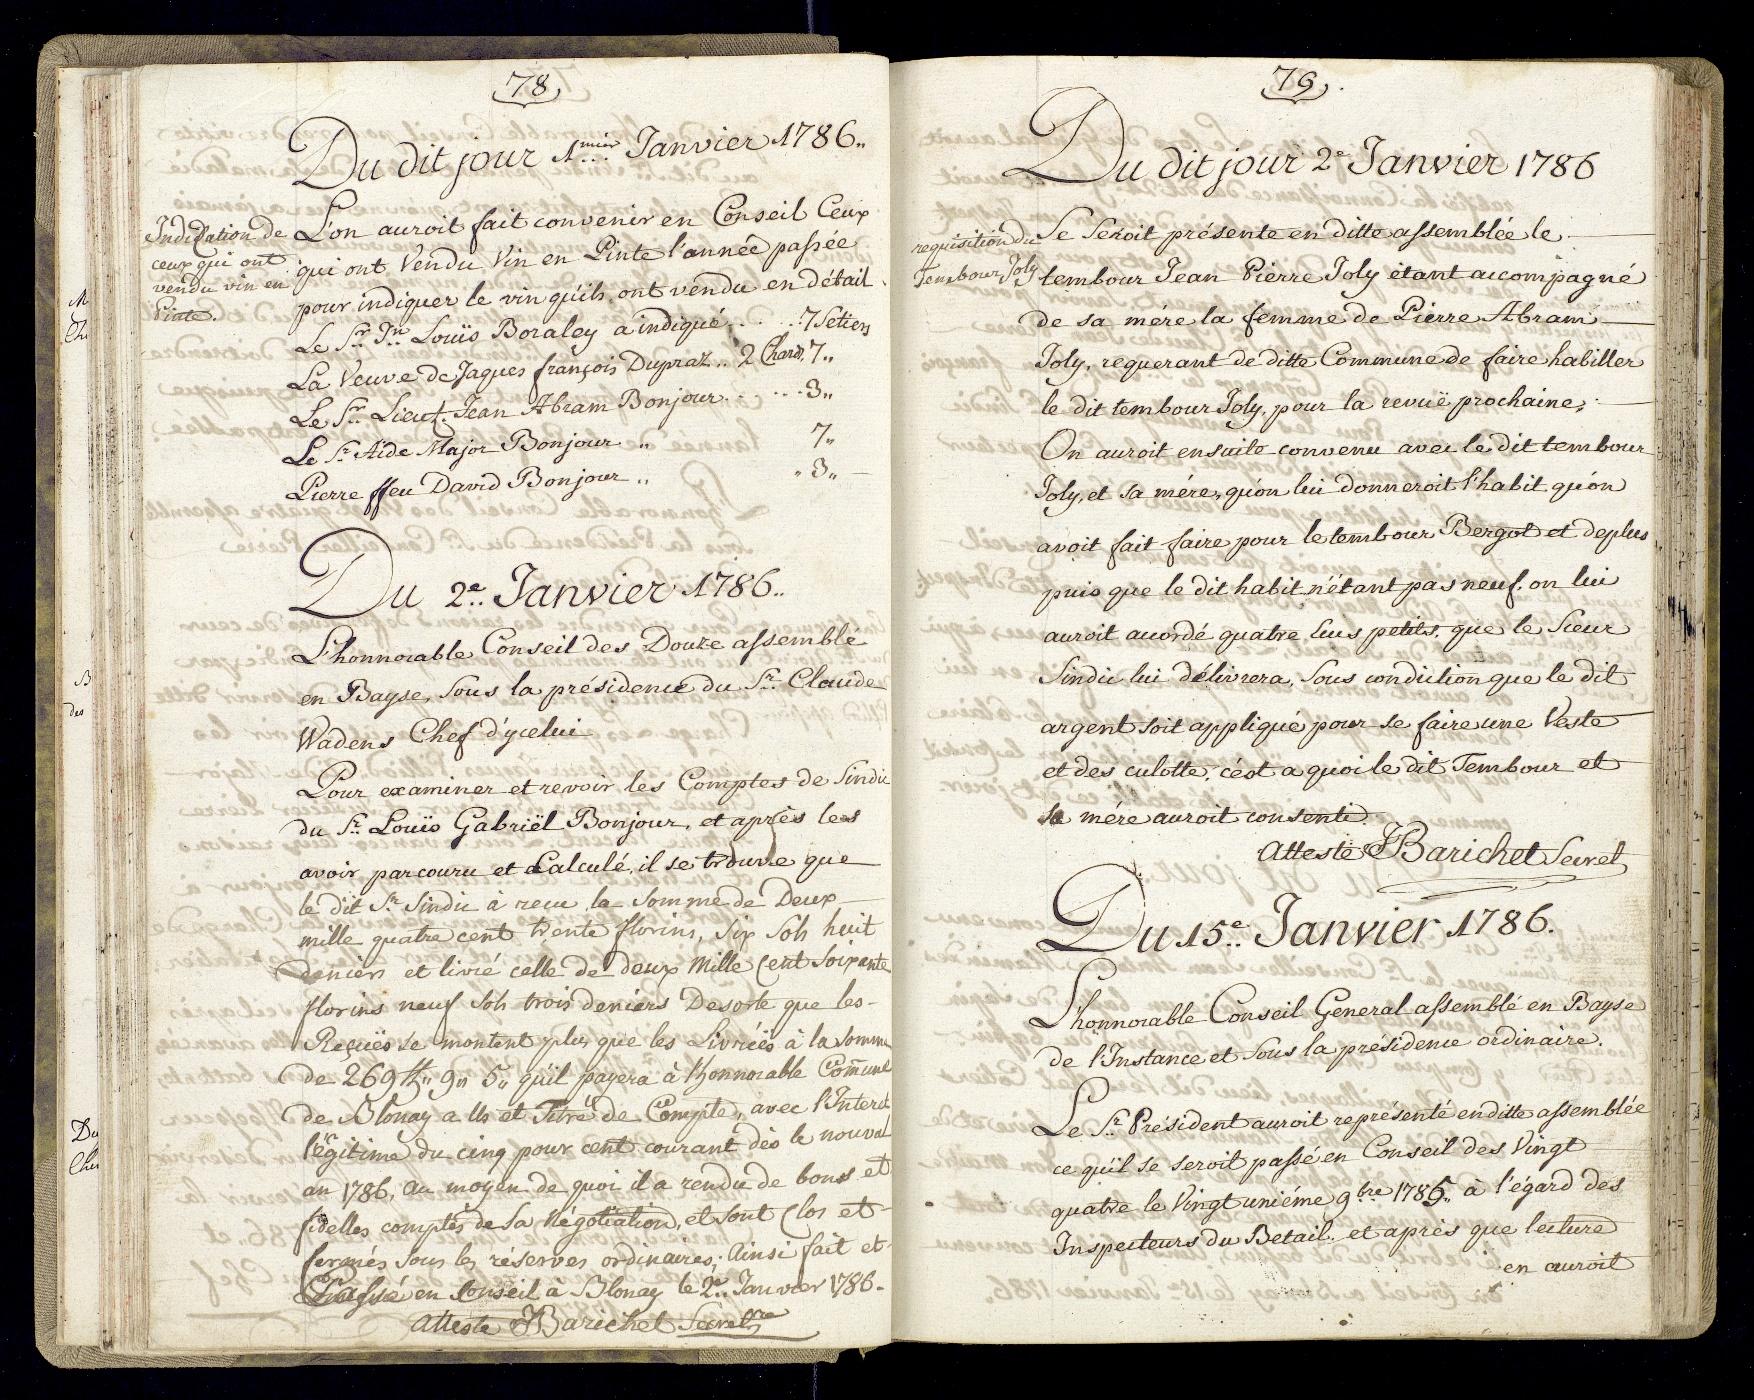 78
Du dit jour 1.mier Janvier 1786..
Indication de
ceux qui ont
vendu vin en
Pinte.
L'on auroit fait convenir en Conseil Ceux
qui ont Vendu Vin en Pinte l'année passée
pour indiquer le vin qu'ils ont vendu en détail.
Le Sr. Jn. Louïs Boraley a indiqué . . . . . 7 Setiers
La Veuve de Jaques françois Dupraz .. 2 Chars, 7 „
Le Sr. Lieut. Jean Abram Bonjour . . . . . . 3 „
Le Sr. Aide Major Bonjour „ 7 „
Pierre ffeu David Bonjour „ „ 3 „
Du 2e. Janvier 1786..
L'honnorable Conseil des Douze assemblé
en Bayse, Sous la présidence du Sr. Claude
Wadens Chef d'ycelui
Pour examiner et revoir les Comptes de Sindic
du Sr. Louïs Gabriël Bonjour, et après les
avoir parcouru et Calculé, il se trouve que
le dit Sr. Sindic à reçu la Somme de Deux
mille quatre cent trente florins, Six Sols huit
deniers et livré celle de deux Mille Cent Soixante
florins neuf Sols trois deniers Desorte que les
Reçuës se montent plus que les Livréës à la Somme
de 269 ff „ 9 „ 5 „ qu'il payera à l'honnorable Comune
de Blonay a Us et Titre de Compte, avec l'Interet
légitime du cinq pour cent courant dès le nouvel
an 1786, au moyen de quoi il a rendu de bons et
fidelles comptes de Sa Négotiation, et sont Clos et
fermés Sous les réserves ordinaires; Ainsi fait et
Passé en Conseil à Blonay le 2e. Janvier 1786.
Atteste JBarichet Secretre
79
Du dit jour 2e Janvier 1786
requisition du
Tembour Joly
Se Seroit présenté en ditte assemblée le
tembour Jean Pierre Joly étant accompagné
de sa mére la femme de Pierre Abram
Joly, requerant de ditte Commune de faire habiller
le dit tembour Joly, pour la revuë prochaine;
On auroit ensuite convenu avec le dit tembour
Joly, et sa mére, qu'on lui donneroit l'habit qu'on
avoit fait faire pour le tembour Bergot et deplus
puis que le dit habit n'étant pas neuf. on lui
auroit acordé quatre Ecus petits, que le Sieur
Sindic lui délivrera, Sous condiction que le dit
argent soit appliqué pour se faire une Veste
et des culotte, c'est a quoi le dit Tembour et
sa mére auroit consenti.
Atteste JBarichet Secret
Du 15e. Janvier 1786.
L'honnorable Conseil General assemblé en Bayse
de l'Instance et Sous la présidence ordinaire.
Le Sr. Président auroit représenté en ditte assemblée
ce qu'il se seroit passé en Conseil des Vingt
quatre le Vingt uniéme 9bre 1785. à l'égard des
Inspecteurs du Betail. et après que lecture
en auroit